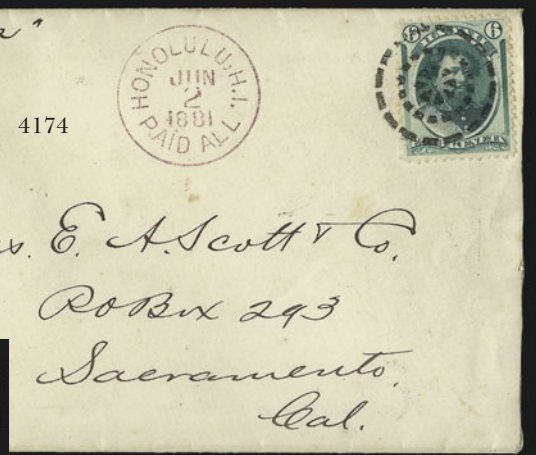 HONOLULU. H.I.
JUN
2
1881
PAID ALL
6 6
4174
E. A. Scott & Co.
PO Box 293
Sacramento,
Cal.